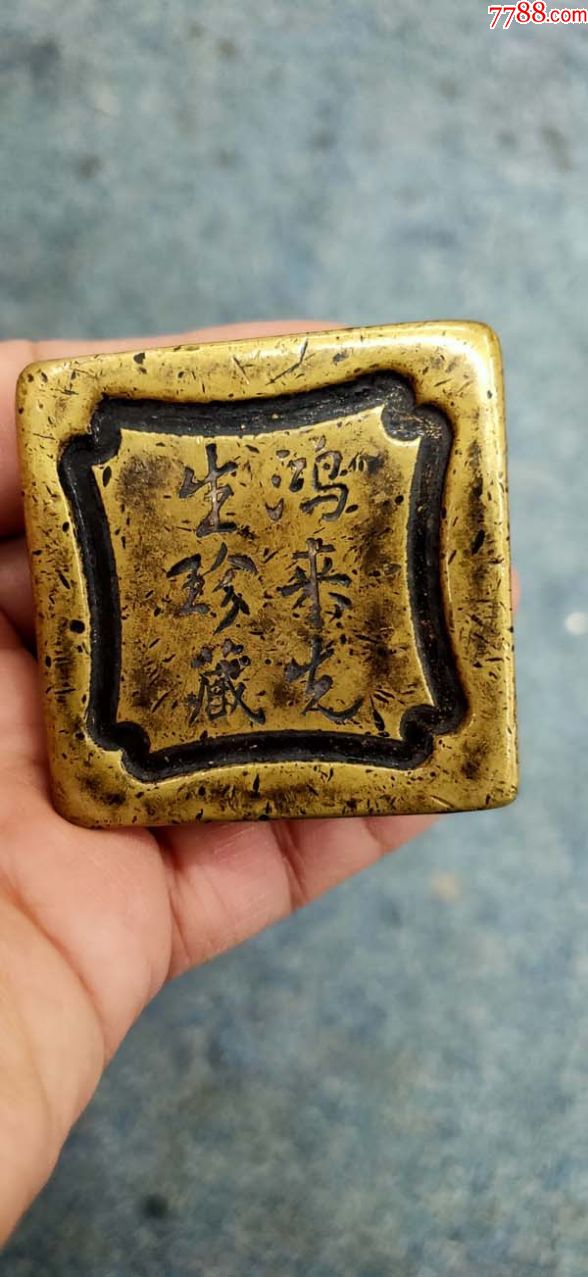 7788.com
鸿来先
生珍藏